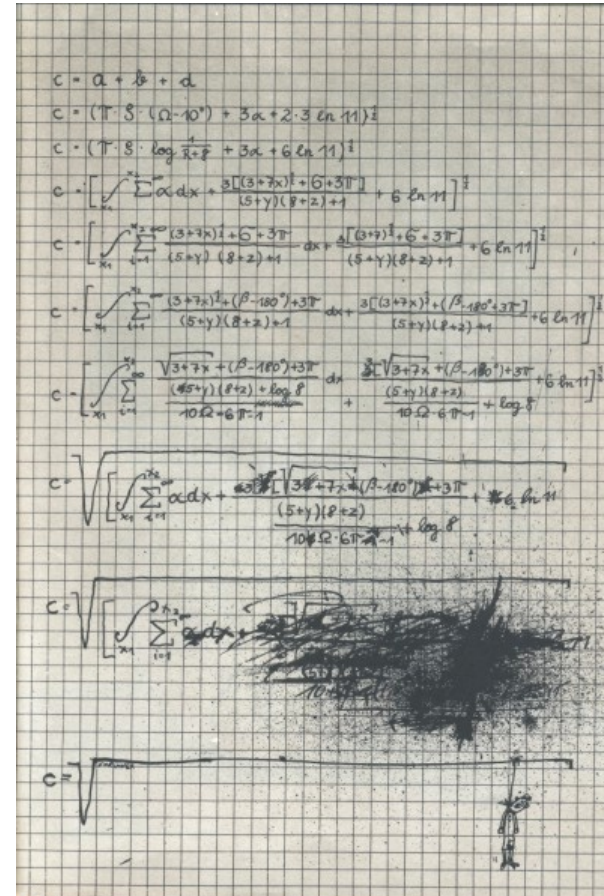 c = a + b + d
c = (π · 8 · (Ω-10°) + 3α + 2·3 ln 11)^½
c = (π · 8 · log 1/(2+8) + 3α + 6 ln 11)^½
c = [∫x₁^x₂ Σ^∞ α dx + 3[(3+7x)^½ + 6 + 3π] / (5+y)(8+z)+1 + 6 ln 11]^½
c = [∫x₁^x₂ Σi=1^∞ (3+7x)^½ + 6 + 3π / (5+y)(8+z)+1 dx + 3[(3+7)^½ + 6 + 3π] / (5+y)(8+z)+1 + 6 ln 11]^½
c = [∫x₁^x₂ Σi=1^∞ (3+7x)^½ + (β-180°) + 3π / (5+y)(8+z)+1 dx + 3[(3+7x)^½ + (β-180°+3π] / (5+y)(8+z)+1 + 6 ln 11]^½
c = [∫x₁^x₂ Σi=1^∞ √3+7x + (β-180°)+3π / (5+y)(8+z) + log 8 / 10Ω-6π-1 dx + 3[√3+7x + (β-180°)+3π / (5+y)(8+z) / 10Ω-6π-1 + log 8 + 6 ln 11]^½
c = √[∫x₁^x₂ Σi=1^∞ α dx + 3[√3+7x + (β-180°) + 3π / (5+y)(8+z) / 10Ω·6π-1 + log 8 + 6 ln 11
c = √[∫x₁^x₂ Σi=1^∞ dx +
c = √